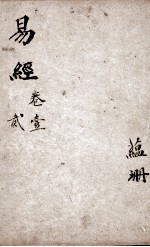 易經
卷壹
貳
蘊珊